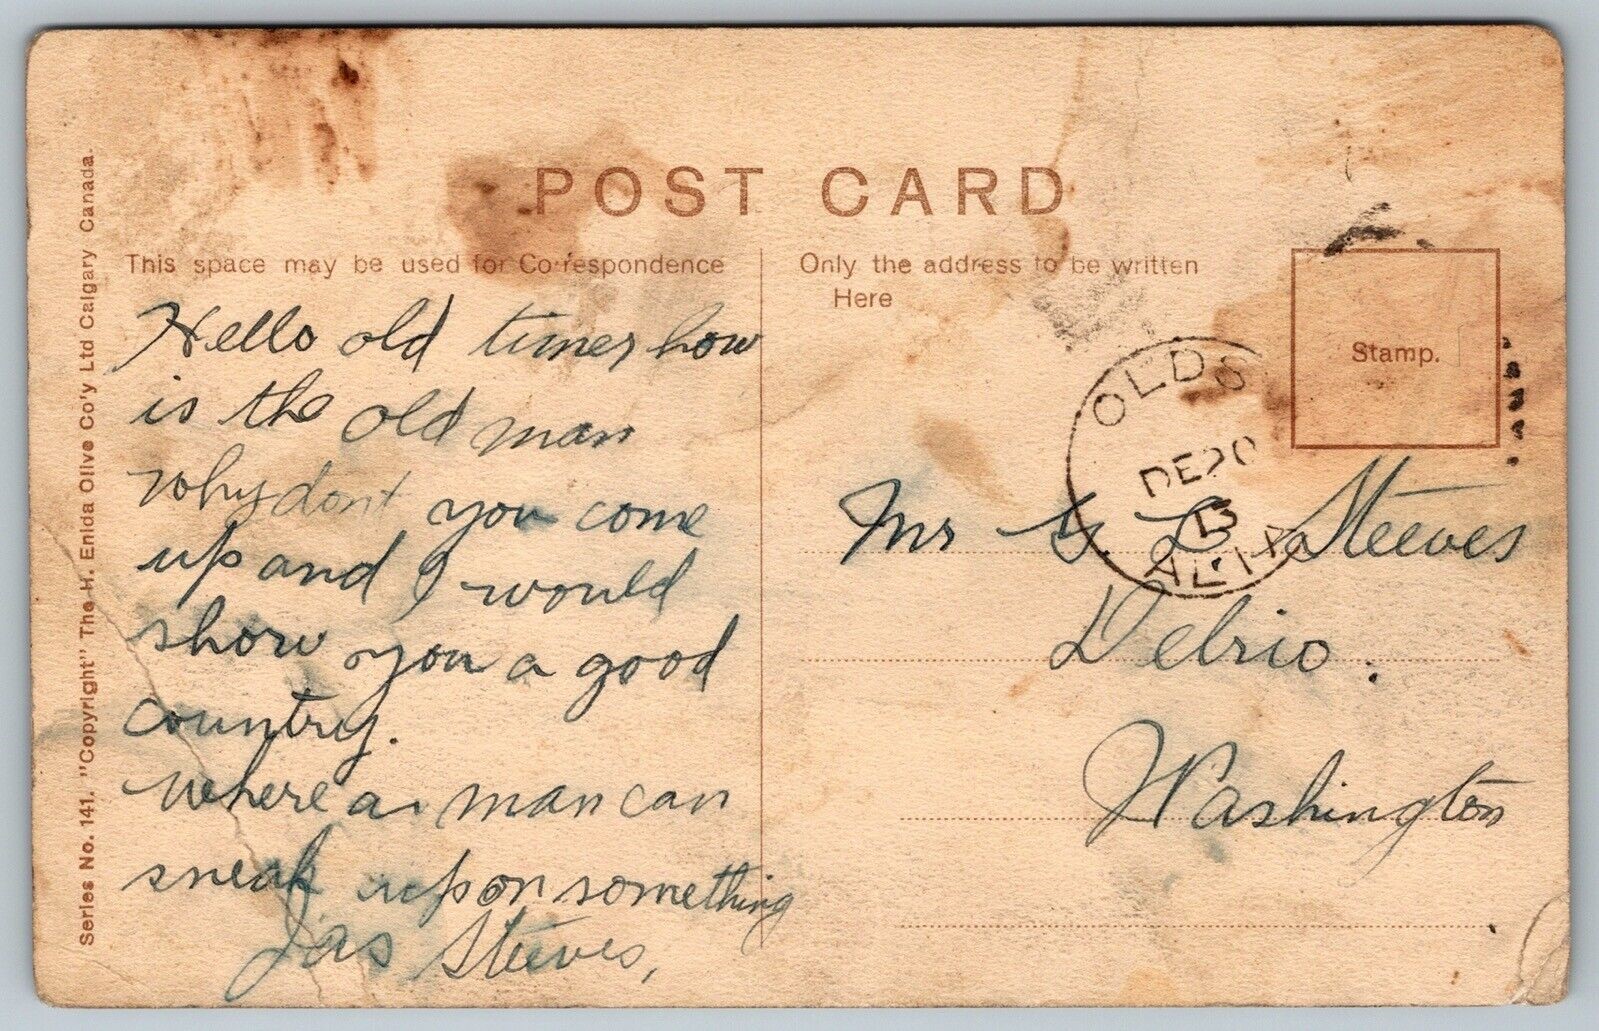 POST CARD
This space may be used for Correspondence
Only the address to be written
Here
Stamp.
Series No. 141. "Copyright" The H. Enida Olive Co'y Ltd Calgary Canada.
Hello old timer how
is the old man
why dont you come
up and I would
show you a good
country.
where a man can
sneak up on something
Jas Steeves,
OLDS
DE 20
13
ALTA
Mr G. L. Steeves
Delrio.
Washington